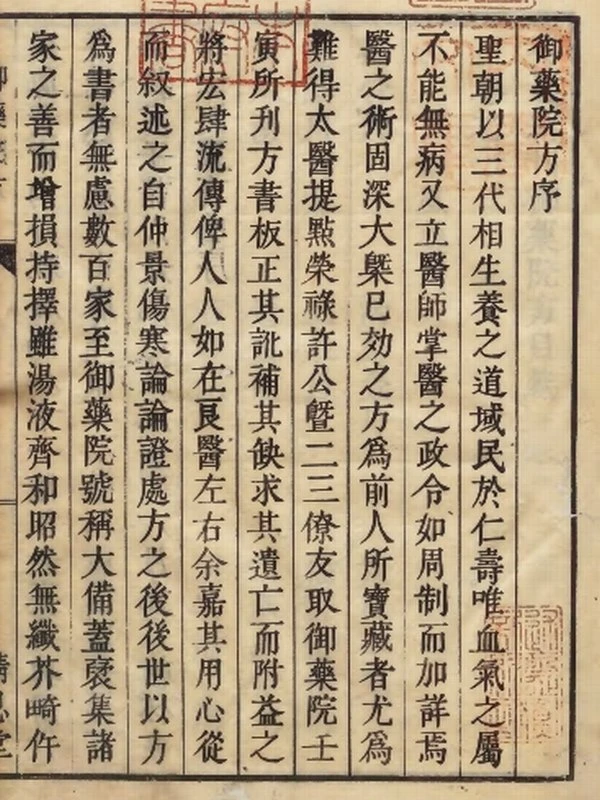 御藥院方序
聖朝以三代相生養之道域民於仁壽唯血氣之屬
不能無病又立醫師掌醫之政令如周制而加詳焉
醫之術固深大槩已効之方爲前人所寶藏者尤爲
難得太醫提點榮祿許公曁二三僚友取御藥院壬
寅所刋方書板正其訛補其缺求其遺亡而附益之
將宏肆流傳俾人人如在良醫左右余嘉其用心從
而叙述之自仲景傷寒論論證處方之後後世以方
爲書者無慮數百家至御藥院號稱大備蓋裒集諸
家之善而增損持擇雖湯液齊和昭然無纖芥畸仵